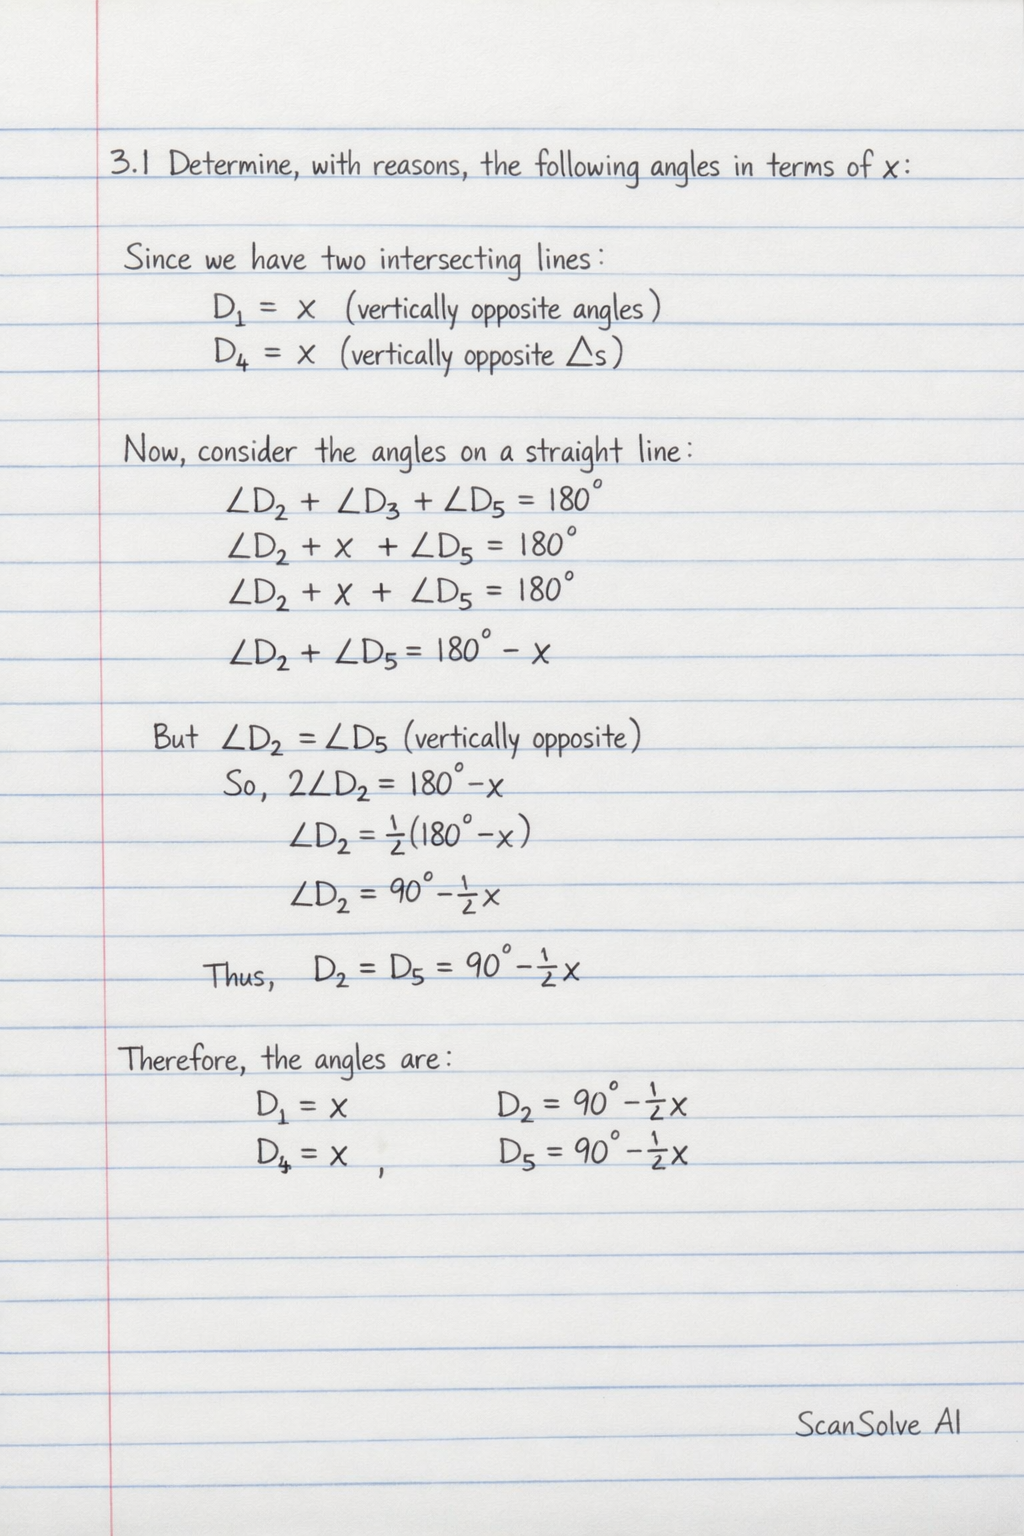 3.1 Determine, with reasons, the following angles in terms of x:
Since we have two intersecting lines:
D₁ = x (vertically opposite angles)
D₄ = x (vertically opposite △s)
Now, consider the angles on a straight line:
∠D₂ + ∠D₃ + ∠D₅ = 180°
∠D₂ + x + ∠D₅ = 180°
∠D₂ + x + ∠D₅ = 180°
∠D₂ + ∠D₅ = 180° - x
But ∠D₂ = ∠D₅ (vertically opposite)
So, 2∠D₂ = 180° - x
∠D₂ = ½(180° - x)
∠D₂ = 90° - ½x
Thus, D₂ = D₅ = 90° - ½x
Therefore, the angles are:
D₁ = x D₂ = 90° - ½x
D₄ = x , D₅ = 90° - ½x
ScanSolve AI